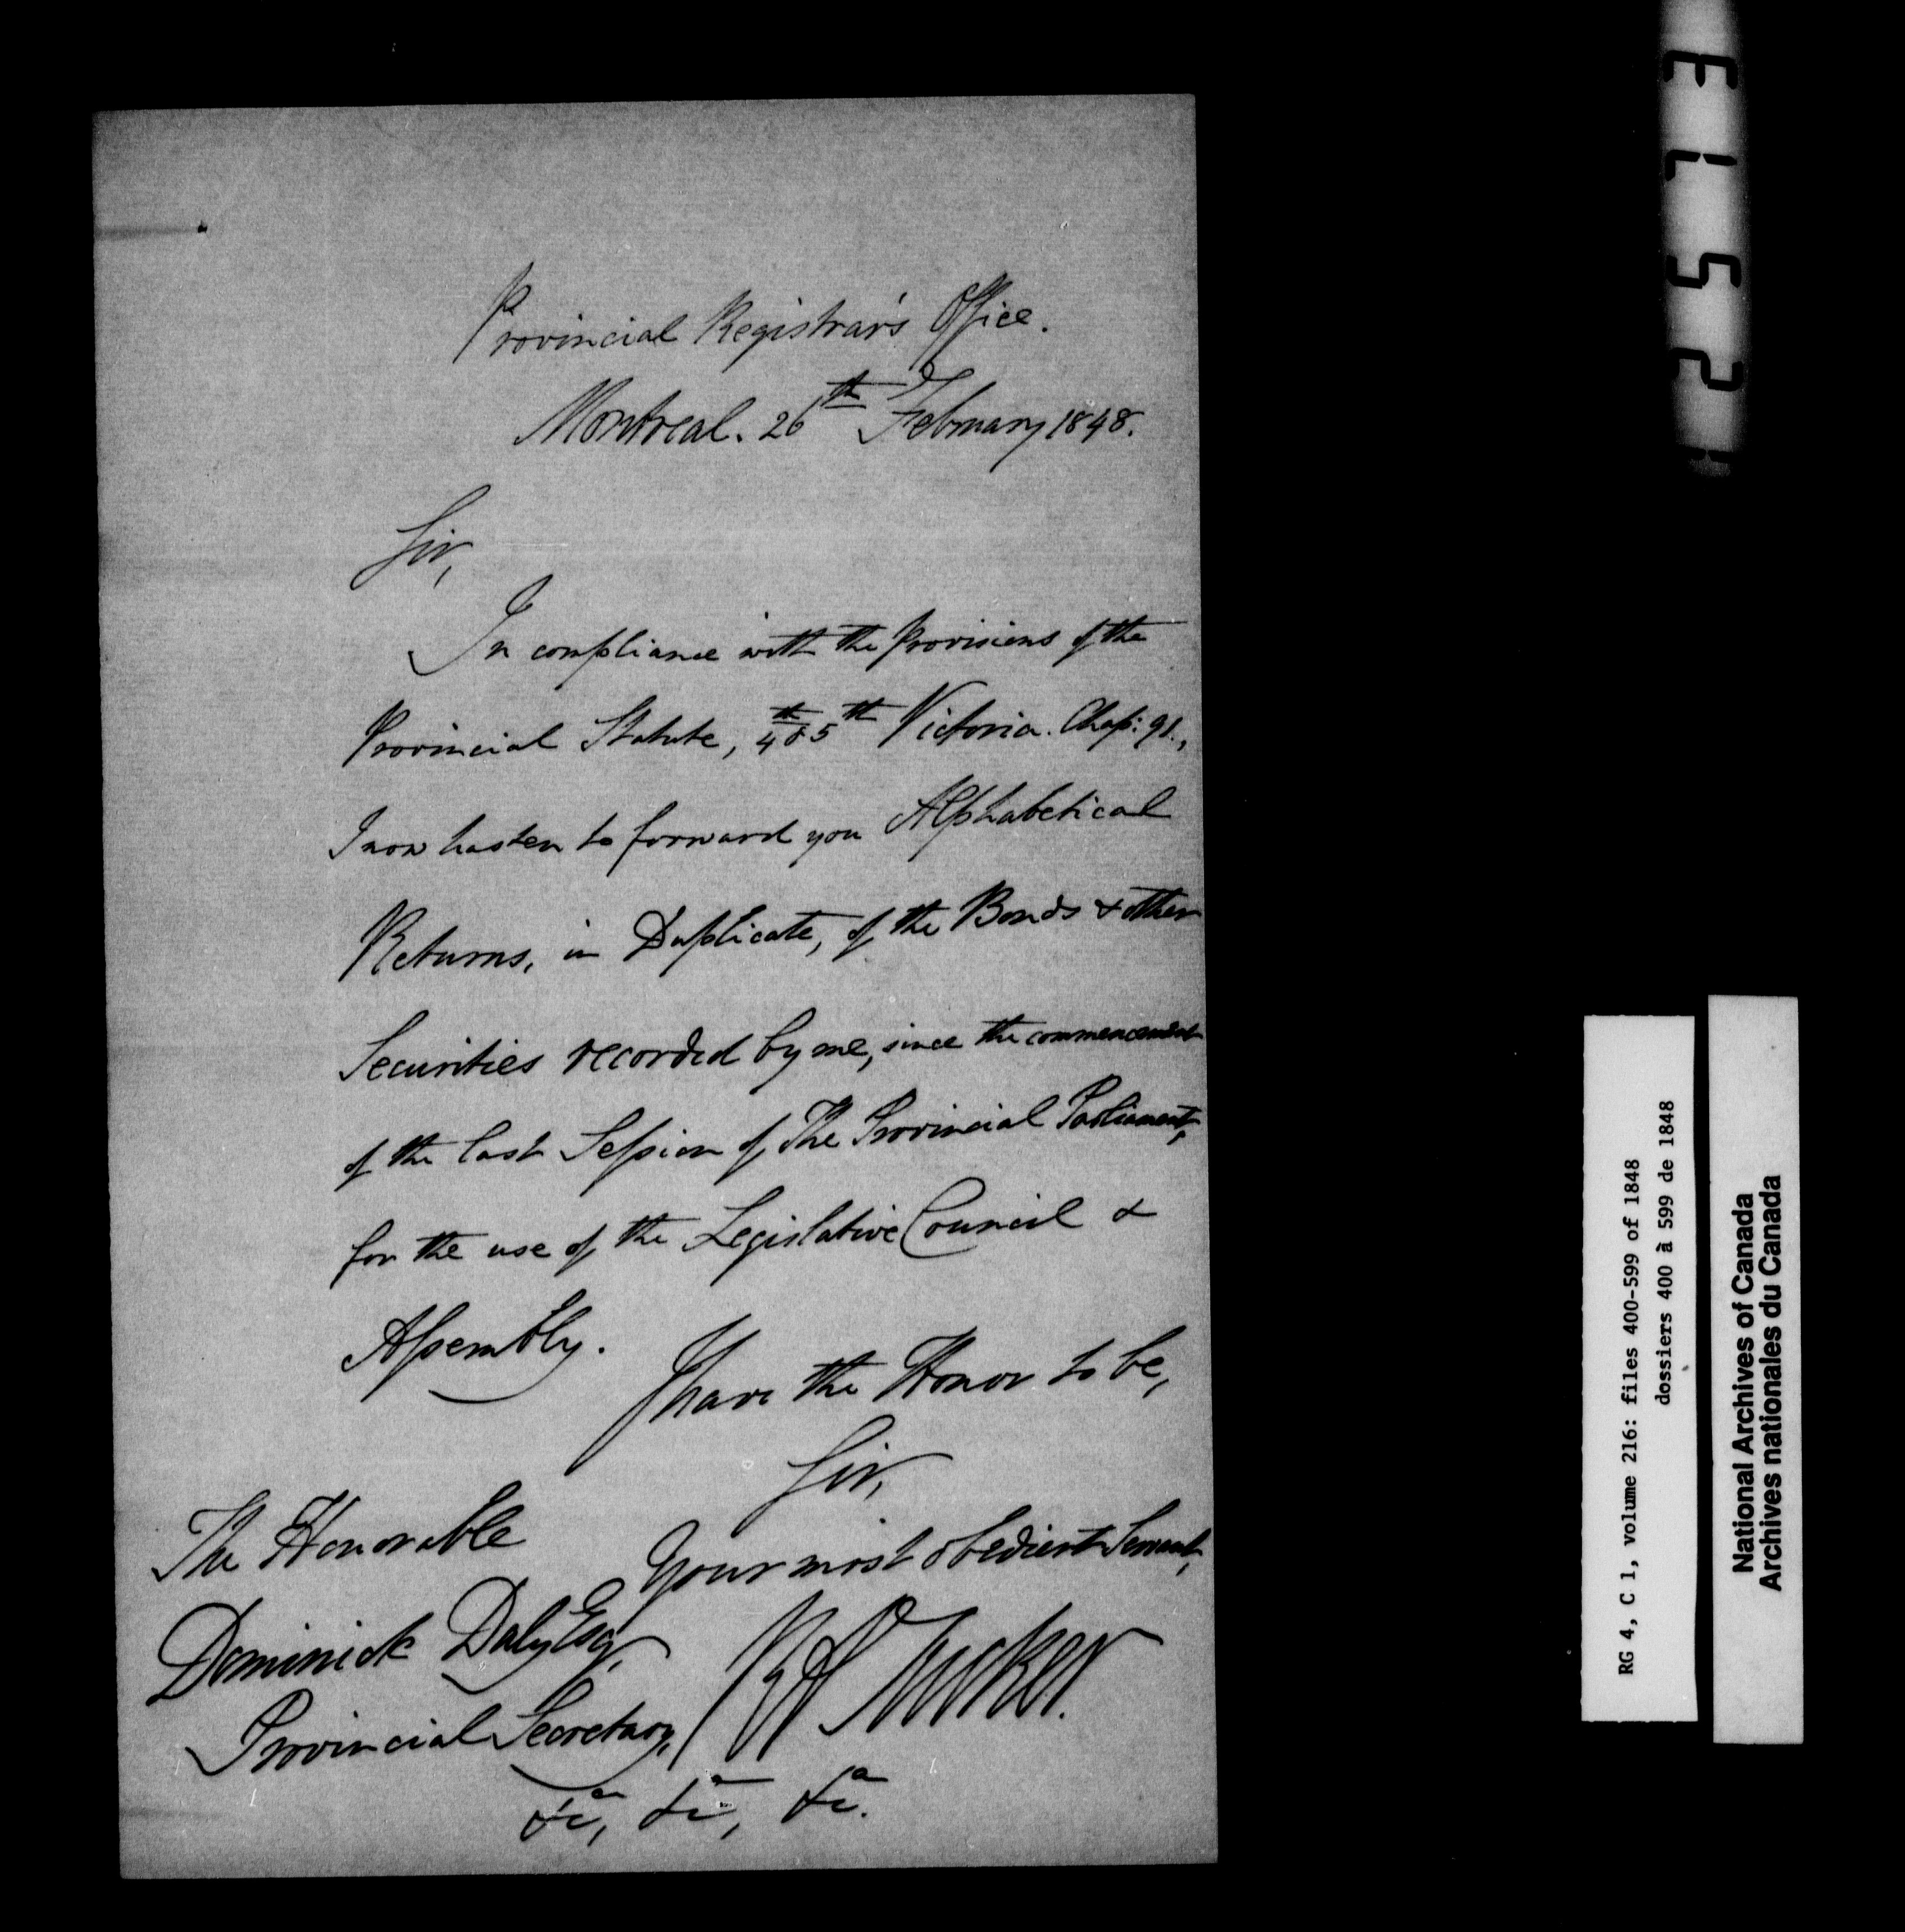 Provincial Registrar's Office.
Montreal. 26th February 1848.
Sir,
In compliance with the provisions of the
Provincial Statute, 4th & 5th Victoria. Chap: 91.,
I now hasten to forward you Alphabetical
Returns, in Duplicate, of the Bonds & other
Securities recorded by me, since the commencement
of the last Session of The Provincial Parliament,
for the use of the Legislative Council &
Assembly.
I have the Honor to be,
Sir,
Your most obedient Servant,
R A Tucker.
The Honorable
Dominick Daly Esq,
Provincial Secretary,
&ca, &ca, &ca.
RG 4, C 1, volume 216: files 400-599 of 1848
dossiers 400 à 599 de 1848
National Archives of Canada
Archives nationales du Canada